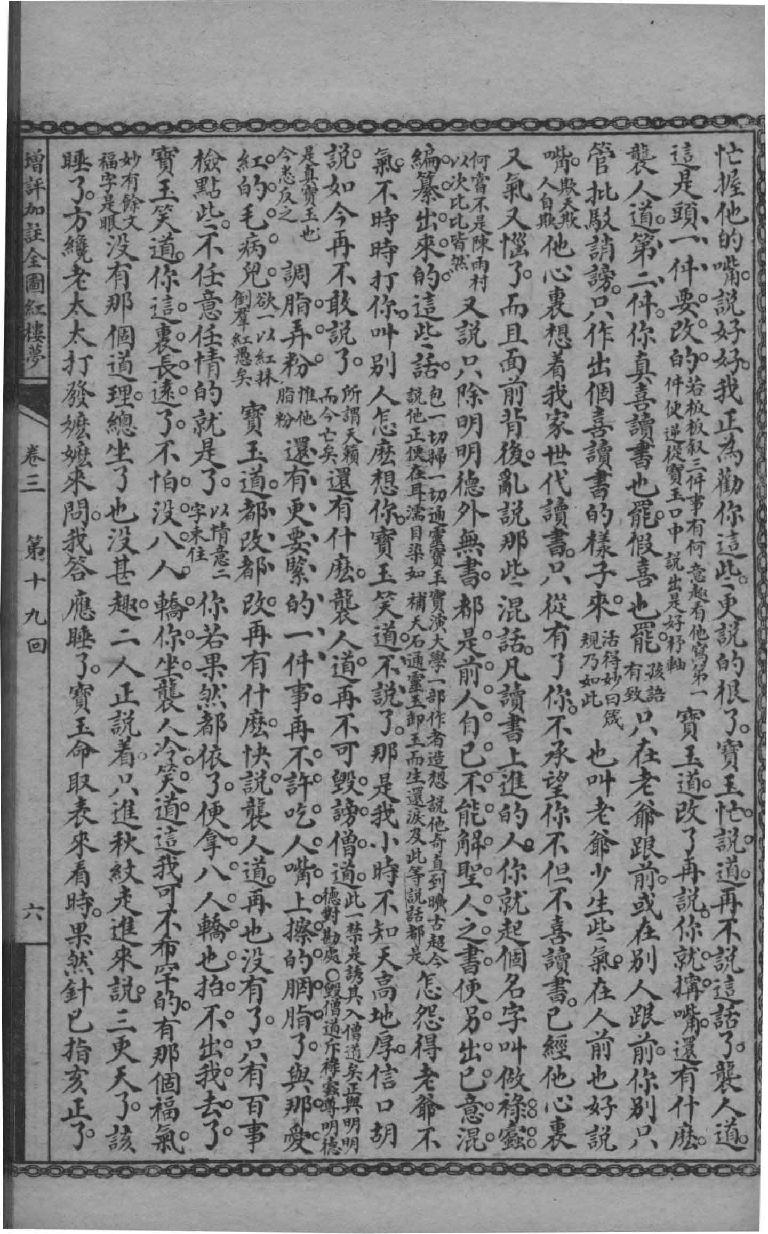 忙握他的嘴說好好我正為勸你這些更說的根了寶玉忙說道再不說這話了襲人道
這是頭一件要改的若板板叙三件事有何意趣看他寫第一件便逆從寶玉口中說出是好杼軸寶玉道改了再說你就擰嘴還有什麽
襲人道第二件你真喜讀書也罷假喜也罷孩語有致只在老爺跟前或在別人跟前你別只
管批駁誚謗只作出個喜讀書的樣子來活得妙曰箴規乃如此也叫老爺少生些氣在人前也好說
嘴欺天欺人自欺他心裏想着我家世代讀書只從有了你不承望你不但不喜讀書已經他心裏
又氣又惱了而且面前背後亂說那些混話凡讀書上進的人你就起個名字叫做祿蠹
何嘗不是陳雨村以次比比皆然又說只除明明德外無書都是前人自已不能解聖人之書便另出已意混
編纂出來的這些話包一切掃一切通靈寶玉實演大學一部作者造想說他奇直到曠古超今說他正便在耳濡目染如補天石通靈玉卸玉而生還淚及此等說話都是怎怨得老爺不
氣不時時打你叫別人怎麽想你寶玉笑道不說了那是我小時不知天高地厚信口胡
說如今再不敢說了所謂天籟而今亡矣還有什麽襲人道再不可毀謗僧道此一禁是誘其入僧道矣正與明明德對勘處○毀僧道斥祿蠹尊明德
是真寶玉也今悉反之調脂弄粉推他脂粉還有更要緊的一件事再不許吃人嘴上擦的胭脂了與那愛
紅的毛病兒欲一以紅抹倒羣紅愚矣寶玉道都改都改再有什麽快說襲人道再也没有了只有百事
檢點些不任意任情的就是了以情意二字未住你若果然都依了便拿八人轎也抬不出我去了
寶玉笑道你這裏長遠了不怕没八人轎你坐襲人冷笑道這我可不希罕的有那個福氣
妙有餘文福字是眼没有那個道理總坐了也没甚趣二人正說着只進秋紋走進來說三更天了該
睡了方纔老太太打發嬤嬤來問我答應睡了寶玉命取表來看時果然針已指亥正了
增評加註全圖紅樓夢　卷三　第十九回　六